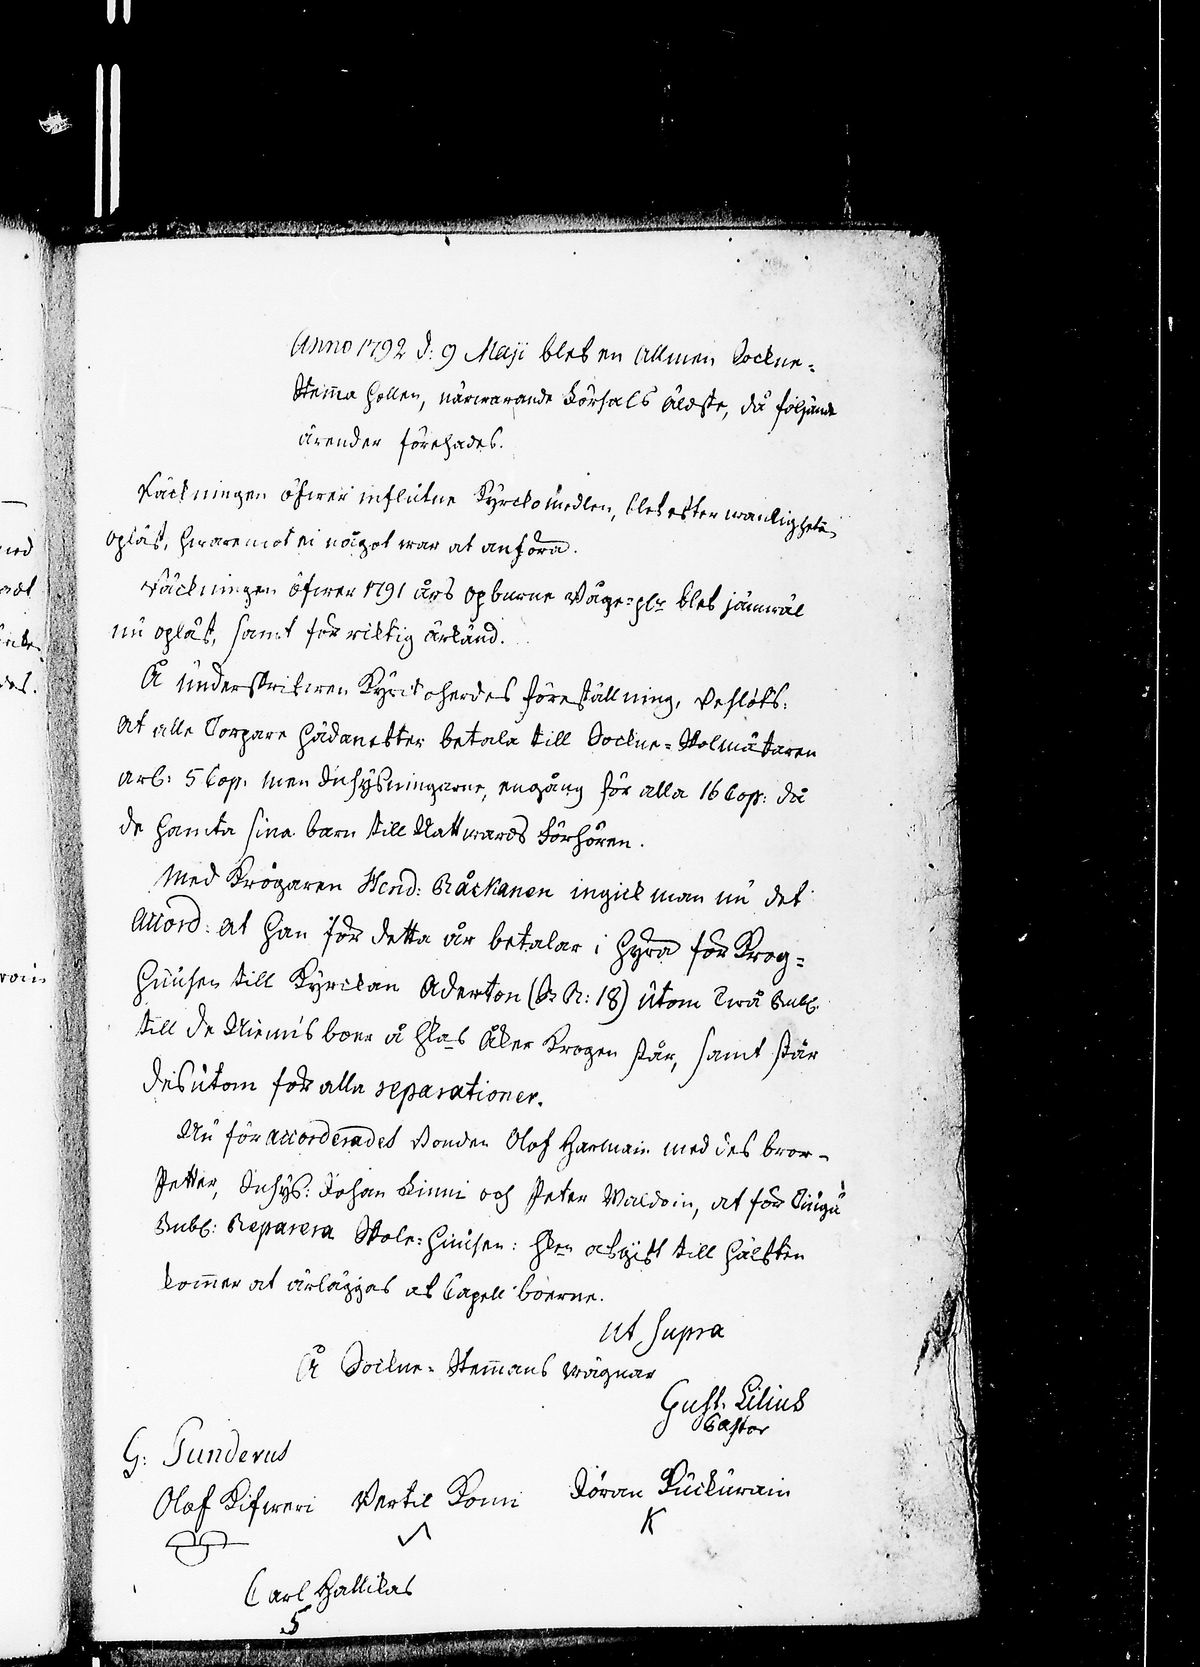 Anno 1792 d: 9 Maji blef en allmen Sockne-
Stem̄a hollen, närwarande Församls äldste, då följande
ärender förehades.
Räckningen öfwer influtne Kyrckomedlen, blef efter wanligheten
opläst, hwaremot ei något war at anföra.
Räckningen öfwer 1791 års opburne Våge-plr blef jämwäl
nu opläst, samt för riktig ärkänd.
Å underskrifwen Kyrckoherdes föreställning, Beslöts:
at alla Torpare hädanefter betala till Sockne-Skolmästaren
arl: 5 Cop. men Inhysningarne, engång för alla 16 Cop: då
de hämta sina barn till Nattwards Förhören.
Med Krögaren Hend: Råckanen ingick man nu det
Accord: at han för detta år betalar i hyra för Krog-
huusen till Kyrckan Aderton (S R: 18) utom Twå Rubl.
till de Niemis boer å hlas åker Krogen står, samt står
desutom för alla reparationer.
Nu för accorderades Bonden Olof Harmain med des bror-
Petter, Inhys: Johan Kinni och Peter Waldoin, at för Tiugu
Rubl: Reparera Skole-huusen: hlen afgift till hälften
kom̄er at ärläggas af Capell boerne.
ut supra
Å Sockne-Stem̄ans wägnar
Gust. Lilius
Pastor
G: Sunderus
Olof Kifweri Bertil Konni Jöran Kuckurain
K
Carl Hallikas
5